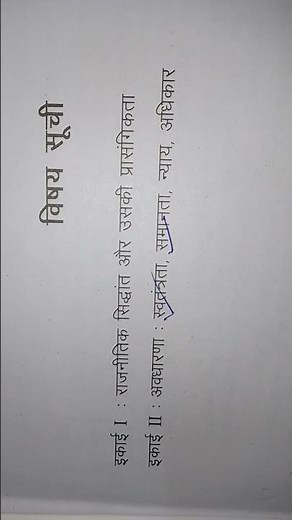 विषय सूची
इकाई I : राजनीतिक सिद्धांत और उसकी प्रासंगिकता
इकाई II : अवधारणा : स्वतंत्रता, समानता, न्याय, अधिकार